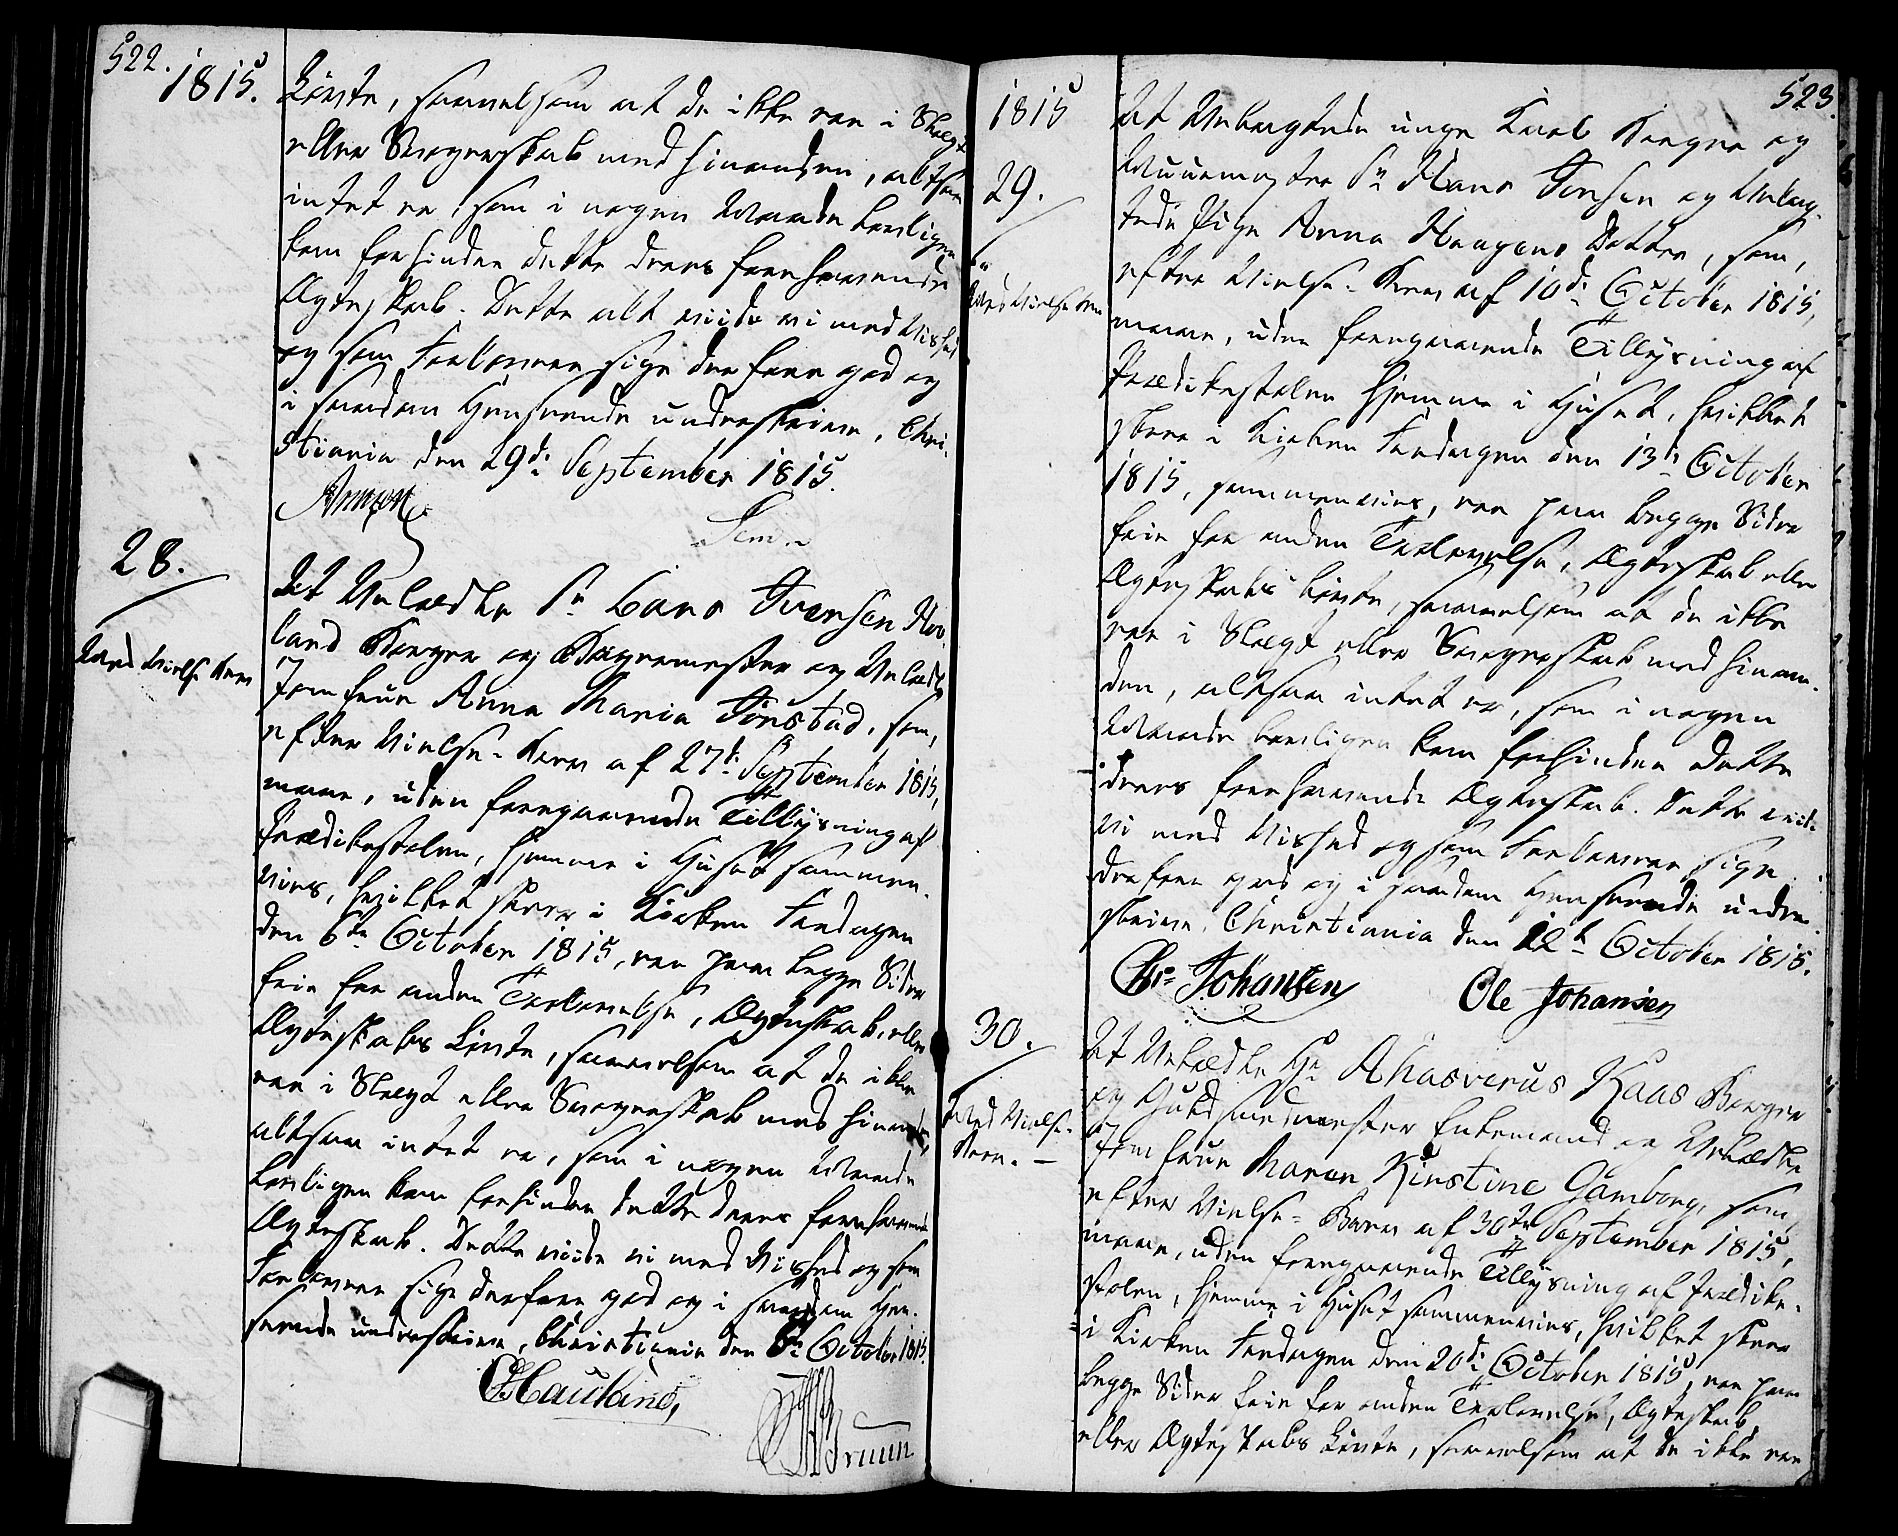 522.
1815.
Løvte, saavelsom at de ikke ere i Slægt
eller Svogerskab med hinanden, altsaa
intet er, som i nogen Maade lovligen
kan forhindre dette deres forehavende
Ægteskab. Dette alt viide vi med Vished
og som Forlovere sige derfore god og
i saadan Henseende underskrive, Chri-
stiania den 29de September 1815.
28.
Med Vielse Brev
At Velædle Sr Lars Iversen Hov-
land Borger og Bagermester og Velædle
Jomfrue Anna Maria Tønstad, som,
efter Vielse-Brev af 27de September 1815,
maae, uden foregaaende Tillysning af
Prædikestolen, hjemme i Huset sammen-
vies, hvilket skeer i Kirken Fredagen
den 6te October 1815, ere paa begge Sider
frie for anden Trolovelse, Ægteskab, eller
Ægteskabs Løvte, saavelsom at de ikke
ere i Slægt eller Svogerskab med hinanden,
altsaa intet er, som i nogen Maade
lovligen kan forhindre dette deres forehavende
Ægteskab. Dette viide vi med Vished og som
Forlovere sige derfore god og i saadan Hen-
seende underskrive, Christiania den 6te October 1815.
Hauland,
Bruun
523.
1815
29.
Med Vielse Brev
At Velagtede unge Karl Borger og
Sr Hans Jonsen og Velag-
tede Pige Anna Haagens Datter, som,
efter Vielse-Brev af 10de October 1815,
maae, uden foregaaende Tillysning af
Prædikestolen hjemme i Huset, hvilket
skeer i Kirken Fredagen den 13de October
1815, sammenvies, ere paa begge Sider
frie for anden Trolovelse, Ægteskab eller
Ægteskabs Løvte, saavelsom at de ikke
ere i Slægt eller Svogerskab med hinan-
den, altsaa intet er, som i nogen
Maade lovligen kan forhindre dette
deres forehavende Ægteskab. Dette viide
vi med Vished og som Forlovere sige
derfore god og i saadan Henseende under-
skrive, Christiania den 12te October 1815.
Chr= Johansen
Ole Johansen
30.
Med Vielse-
Brev. —
At Velædle Hr Ahasverus Kaas Borger
og Guldsmedmester Enkemand og Velædle
Jomfrue Maren Kirstine Gamborg, som
efter Vielse-Brev af 30te September 1815,
maae, uden foregaaende Tillysning af Prædike-
stolen, hjemme i Huset sammenvies, hvilket skeer
i Kirken Fredagen den 20de October 1815, ere paa
begge Sider frie for anden Trolovelse, Ægteskab,
eller Ægteskabs Løvte, saavelsom at de ikke ere